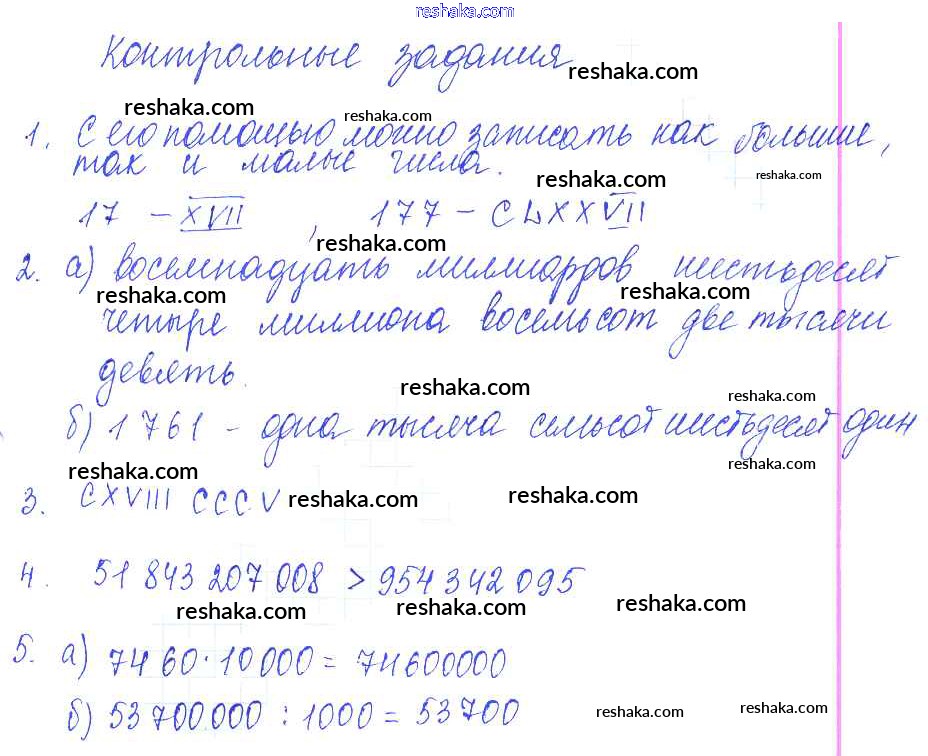 reshaka.com
Контрольные задания
reshaka.com
reshaka.com
reshaka.com
1. С его помощью можно записать как большие,
так и малые числа.
reshaka.com
reshaka.com
17 - XVII, 177 - CLXXVII
reshaka.com
2. а) восемнадцать миллиардов шестьдесят
reshaka.com
reshaka.com
четыре миллиона восемьсот две тысячи
девять.
reshaka.com
reshaka.com
б) 1761 - одна тысяча семьсот шестьдесят один
reshaka.com
reshaka.com
3. CXVIII CCCV
reshaka.com
reshaka.com
4. 51 843 207 008 > 954 342 095
reshaka.com
reshaka.com
reshaka.com
5. а) 7460·10000 = 74600000
б) 53 700 000 : 1000 = 53 700
reshaka.com
reshaka.com